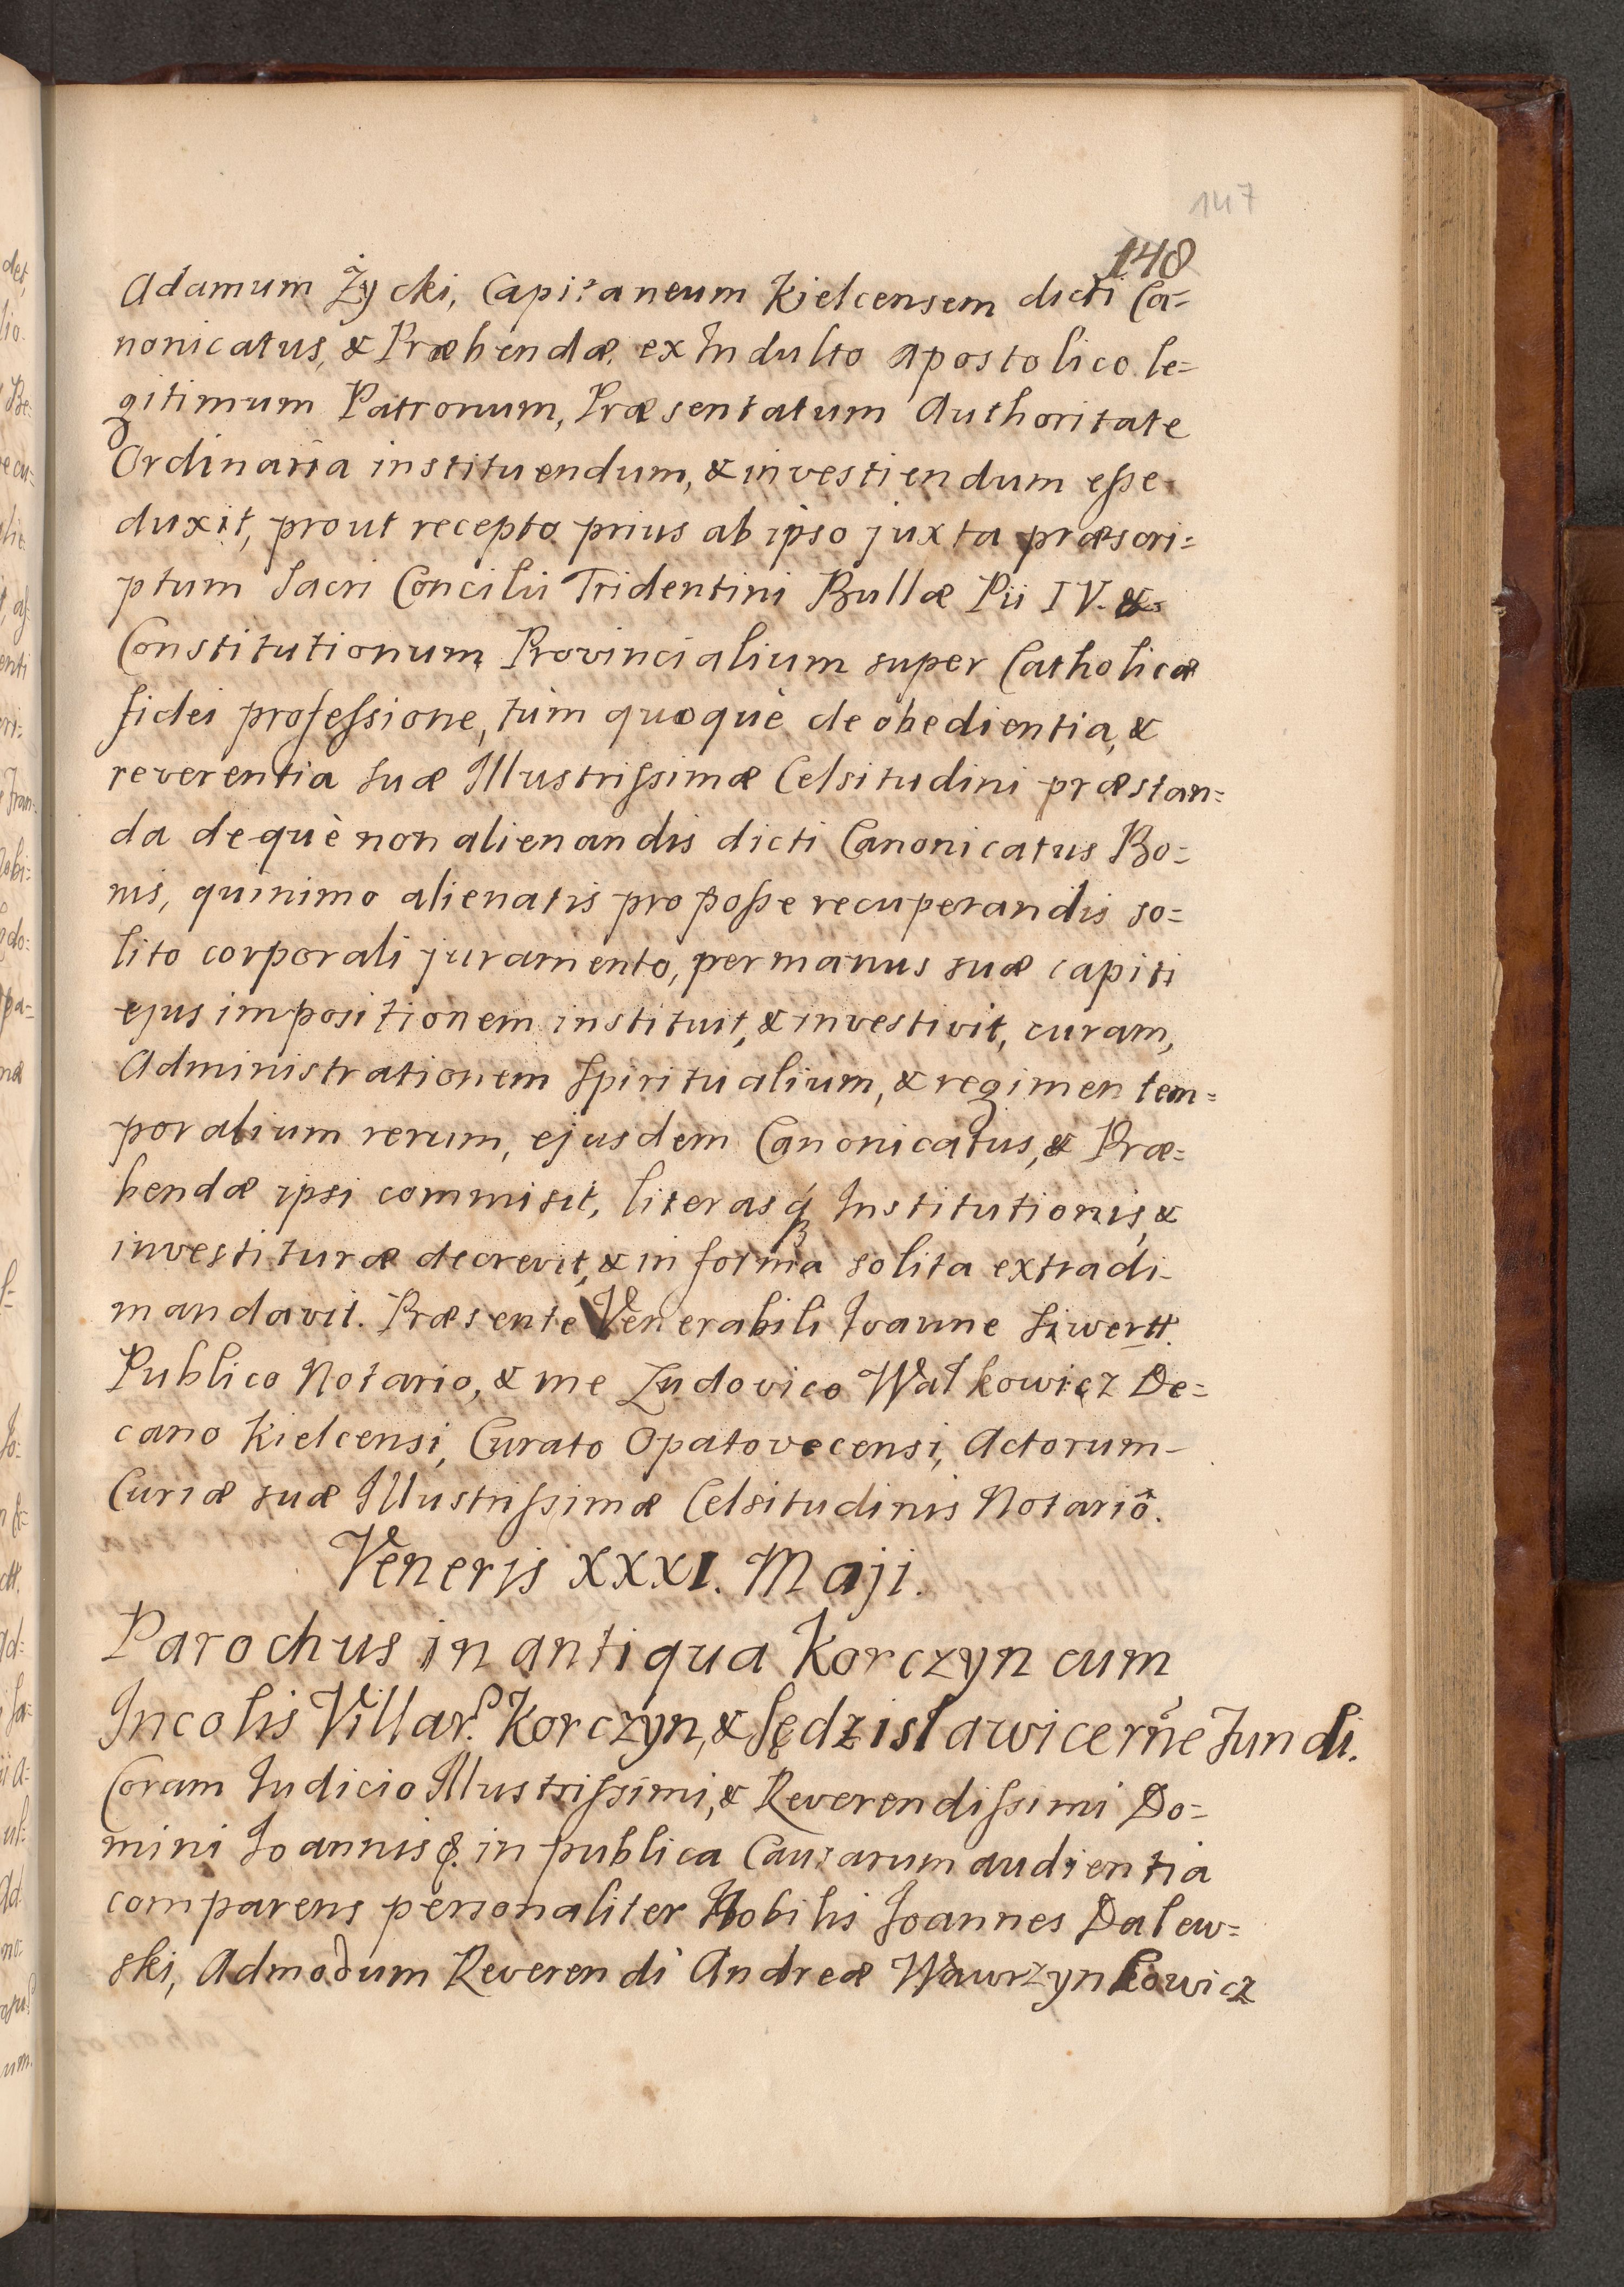 147
148
Adamum Życki, Capitaneum Kielcensem dicti Ca=
nonicatus, & Præbendæ, ex Indulto Apostolico le=
gitimum Patronum, Præsentatum Authoritate
Ordinaria instituendum, & investiendum esse
duxit, prout recepto prius ab ipso juxta præscri=
ptum Sacri Concilii Tridentini Bullæ Pii IV. &
Constitutionum Provincialium super Catholicæ
fidei professione, tùm quoquè de obedientia, &
reverentia suæ Illustrissimæ Celsitudini præstan=
da dequè non alienandis dicti Canonicatus Bo=
nis, quinimo alienatis pro posse recuperandis so=
lito corporali juramento, per manus suæ capiti
ejus impositionem instituit, & investivit, curam,
Administrationem Spiritualium, & regimen tem=
poralium rerum, ejusdem Canonicatus, & Præ=
bendæ ipsi commisit, literasq́ Institutionis, &
investituræ decrevit, & in forma solita extradi
mandavit. Præsente Venerabili Joanne Siwertt
Publico Notario, & me Ludovico Wałkowicz De=
cano Kielcensi, Curato Opatovecensi, Actorum
Curiæ suæ Illustrissimæ Celsitudinis Notariô.
Veneris XXXI. Maji.
Parochus in antiqua Korczyn cum
Incolis Villar. Korczyn, & Sędzisławice rñe fundi.
Coram Judicio Illustrissimi, & Reverendissimi Do=
mini Joannis &. in publica Causarum audientia
comparens personaliter Nobilis Joannes Dalew=
ski, Admodum Reverendi Andreæ Wawrzynkowicz